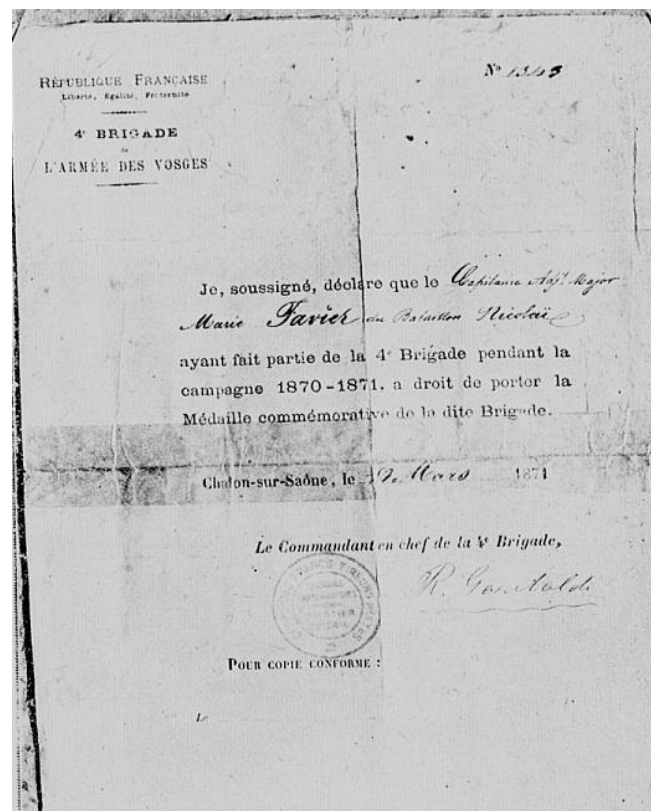 RÉPUBLIQUE FRANÇAISE
Liberté, Égalité, Fraternité
4e BRIGADE
de
L'ARMÉE DES VOSGES
No 1343
Je, soussigné, déclare que le Capitaine Adjt Major
Marie Favier du Bataillon Nicolaï
ayant fait partie de la 4e Brigade pendant la
campagne 1870-1871. a droit de porter la
Médaille commémorative de la dite Brigade.
Chalon-sur-Saône, le 12 Mars 1871
Le Commandant en chef de la 4e Brigade,
R. Garibaldi
POUR COPIE CONFORME :
Le